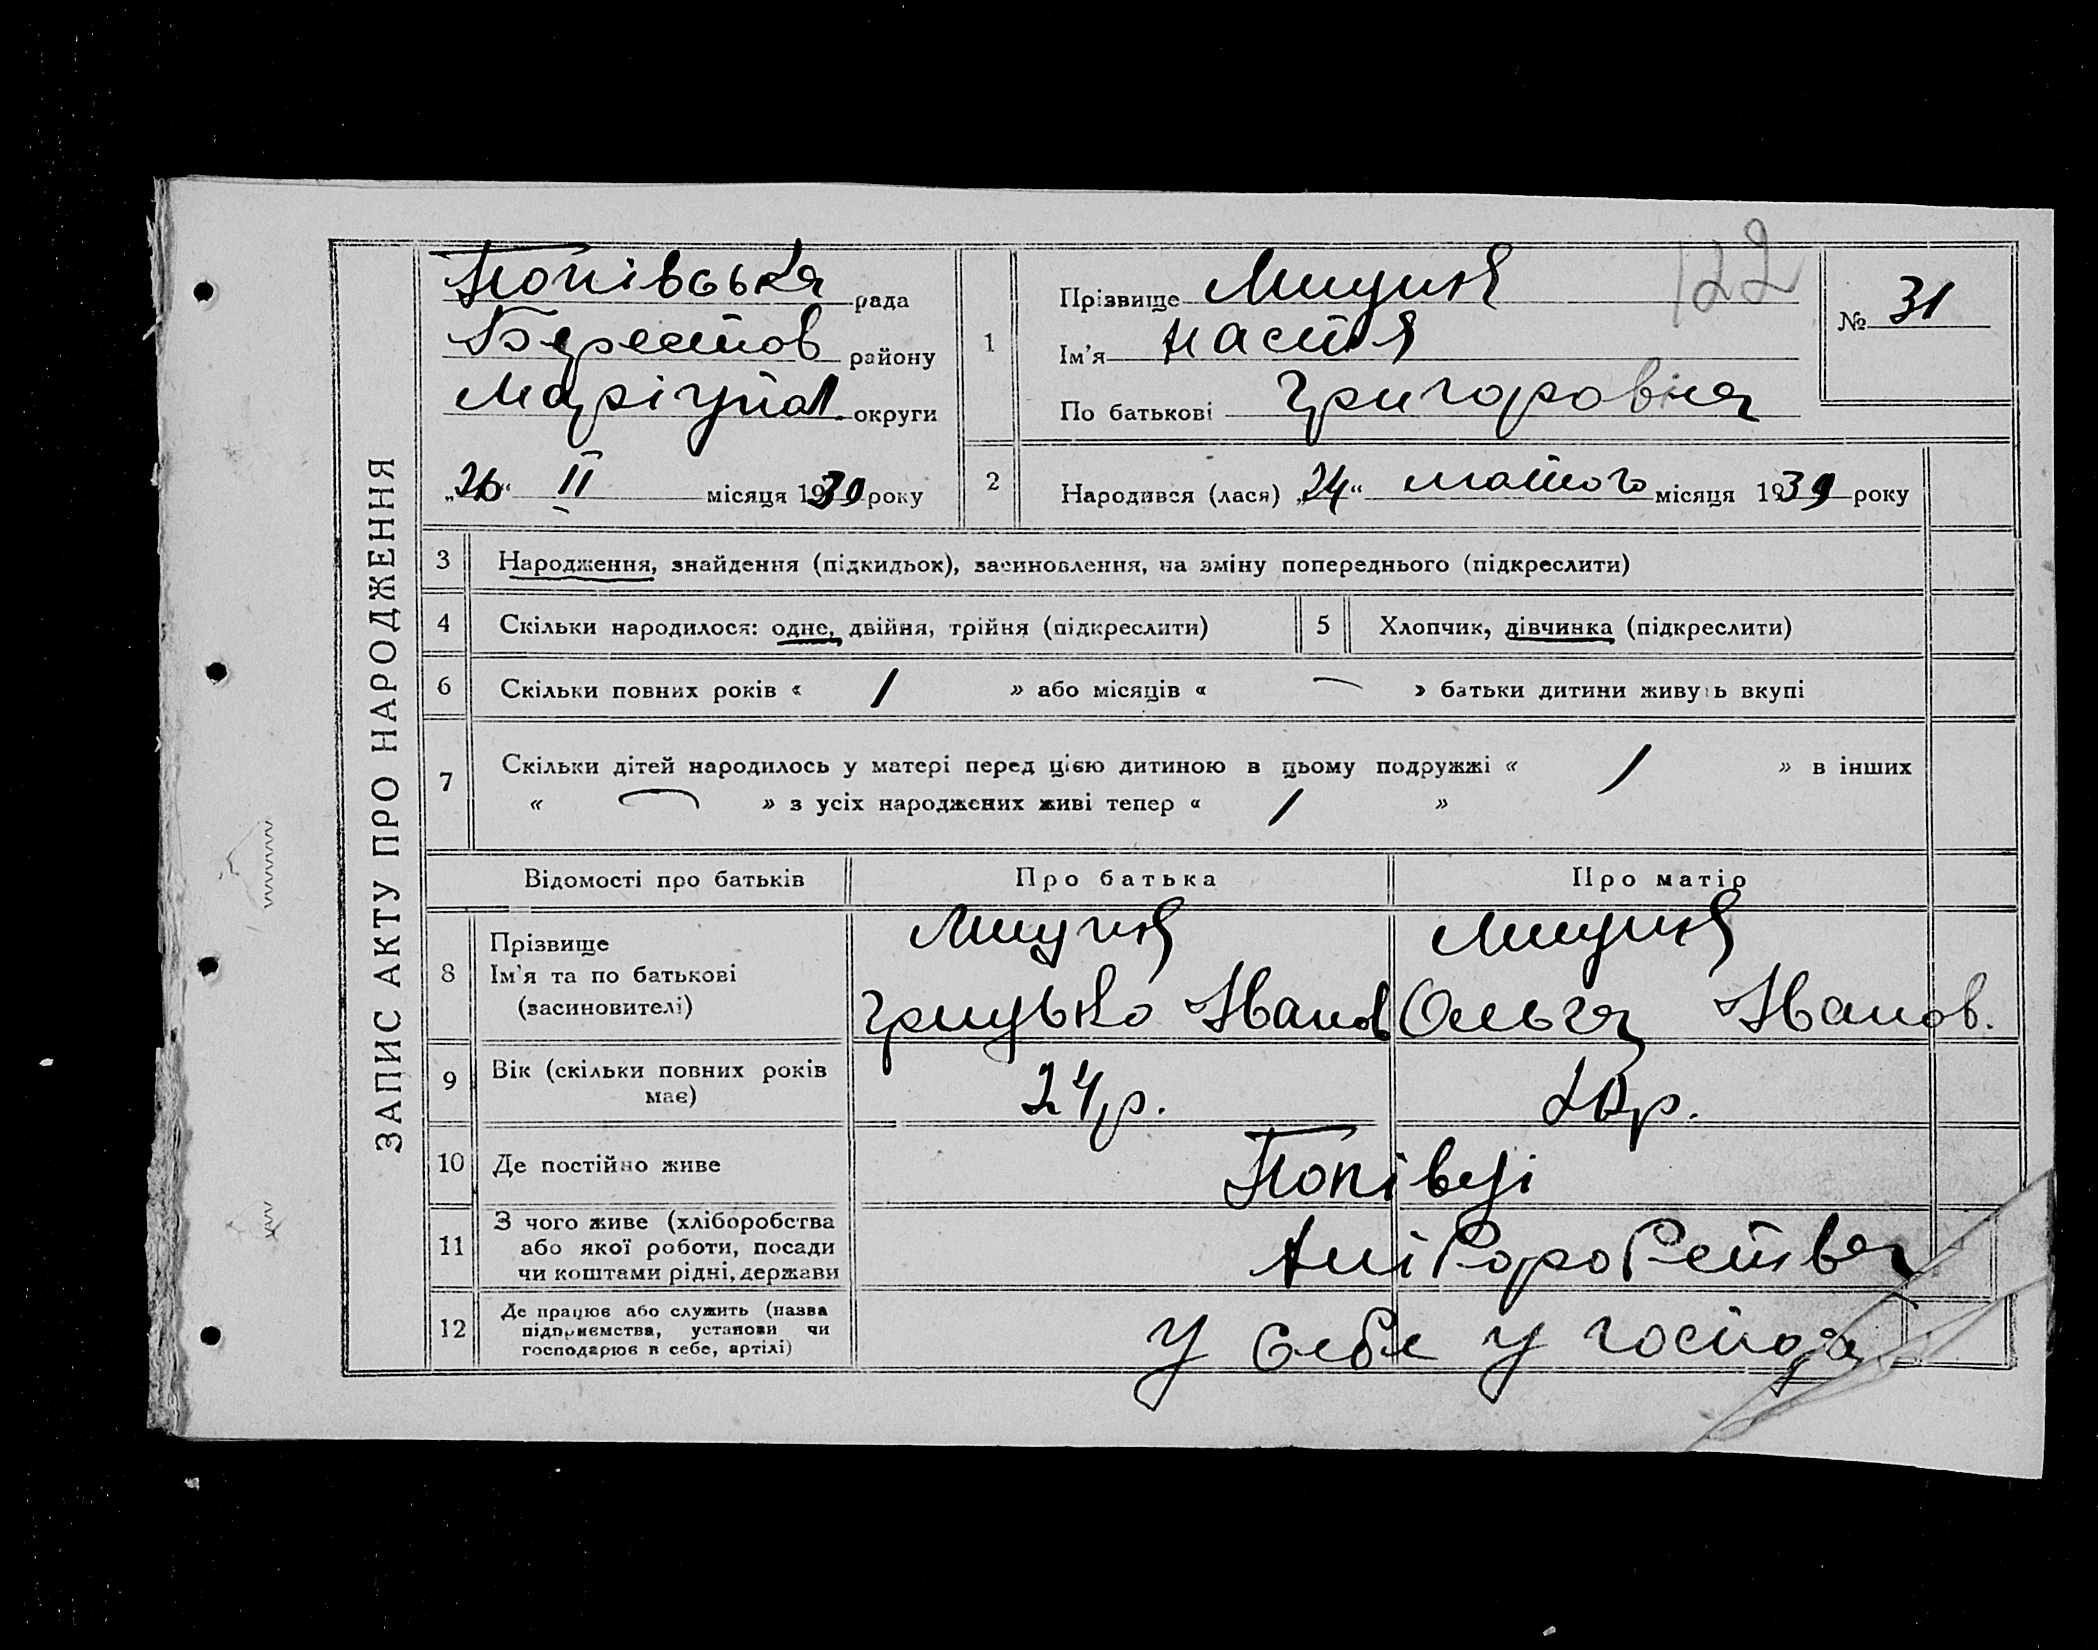 ЗАПИС АКТУ ПРО НАРОДЖЕННЯ
Попівська рада
Берестов району
Маріупол округи
„26“ II місяця 1930 року
1
Прізвище Мицик
122
№ 31
Ім'я Настя
По батькові Григоровна
2 Народився (лася) „24“ лютого місяця 1930 року
3 Народження, знайдення (підкидьок), засиновлення, на зміну попереднього (підкреслити)
4 Скільки народилося: одне, двійня, трійня (підкреслити)
5 Хлопчик, дівчинка (підкреслити)
6 Скільки повних років « / » або місяців « — » батьки дитини живуть вкупі
7 Скільки дітей народилось у матері перед цією дитиною в цьому подружжі « / » в інших
« — » з усіх народжених живі тепер « / »
Відомості про батьків Про батька Про матір
8 Прізвище
Ім'я та по батькові
(засиновителі)
Мицик
Грицько Іванов
Мицик
Ольга Іванов.
9 Вік (скільки повних років
має)
24 р. 20 р.
10 Де постійно живе Попівці
11 З чого живе (хліборобства
або якої роботи, посади
чи коштами рідні, держави
хліборобства
12 Де працює або служить (назва
підприємства, установи чи
господарює в себе, артілі)
у себе у господа